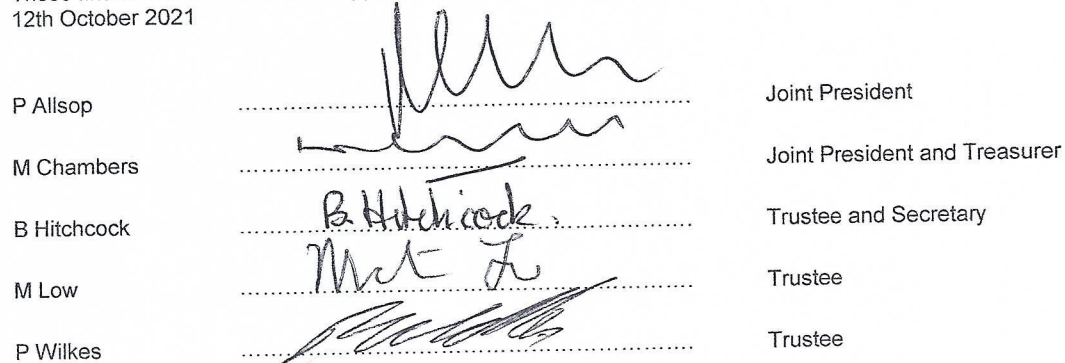 12th October 2021
P Allsop Joint President
M Chambers Joint President and Treasurer
B Hitchcock B Hitchcock. Trustee and Secretary
M Low Trustee
P Wilkes Trustee